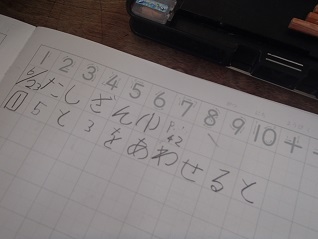 1 2 3 4 5 6 7 8 9 10 + -
5/23 たしざん(1) P.42
1 5と3をあわせると